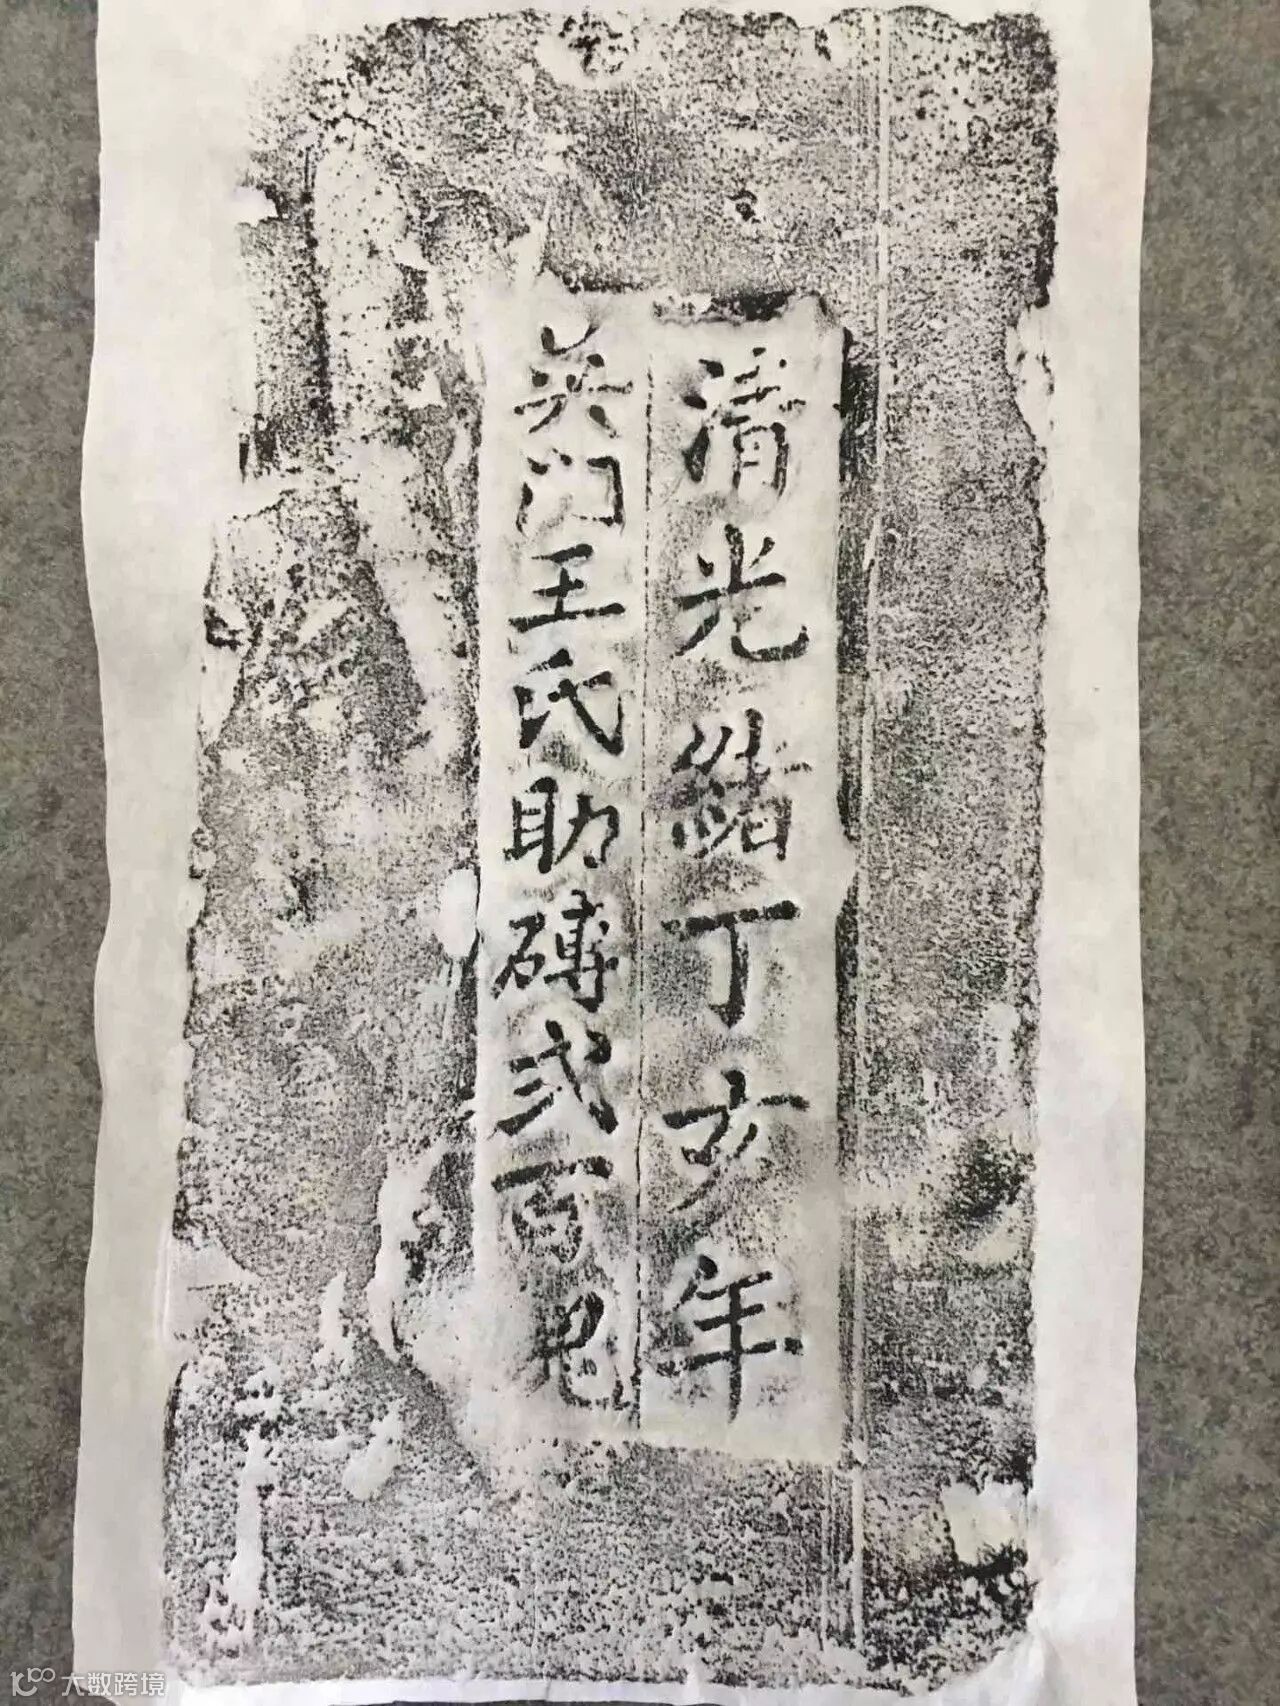 清光緒丁亥年
英門王氏助磚弍百
大数跨境